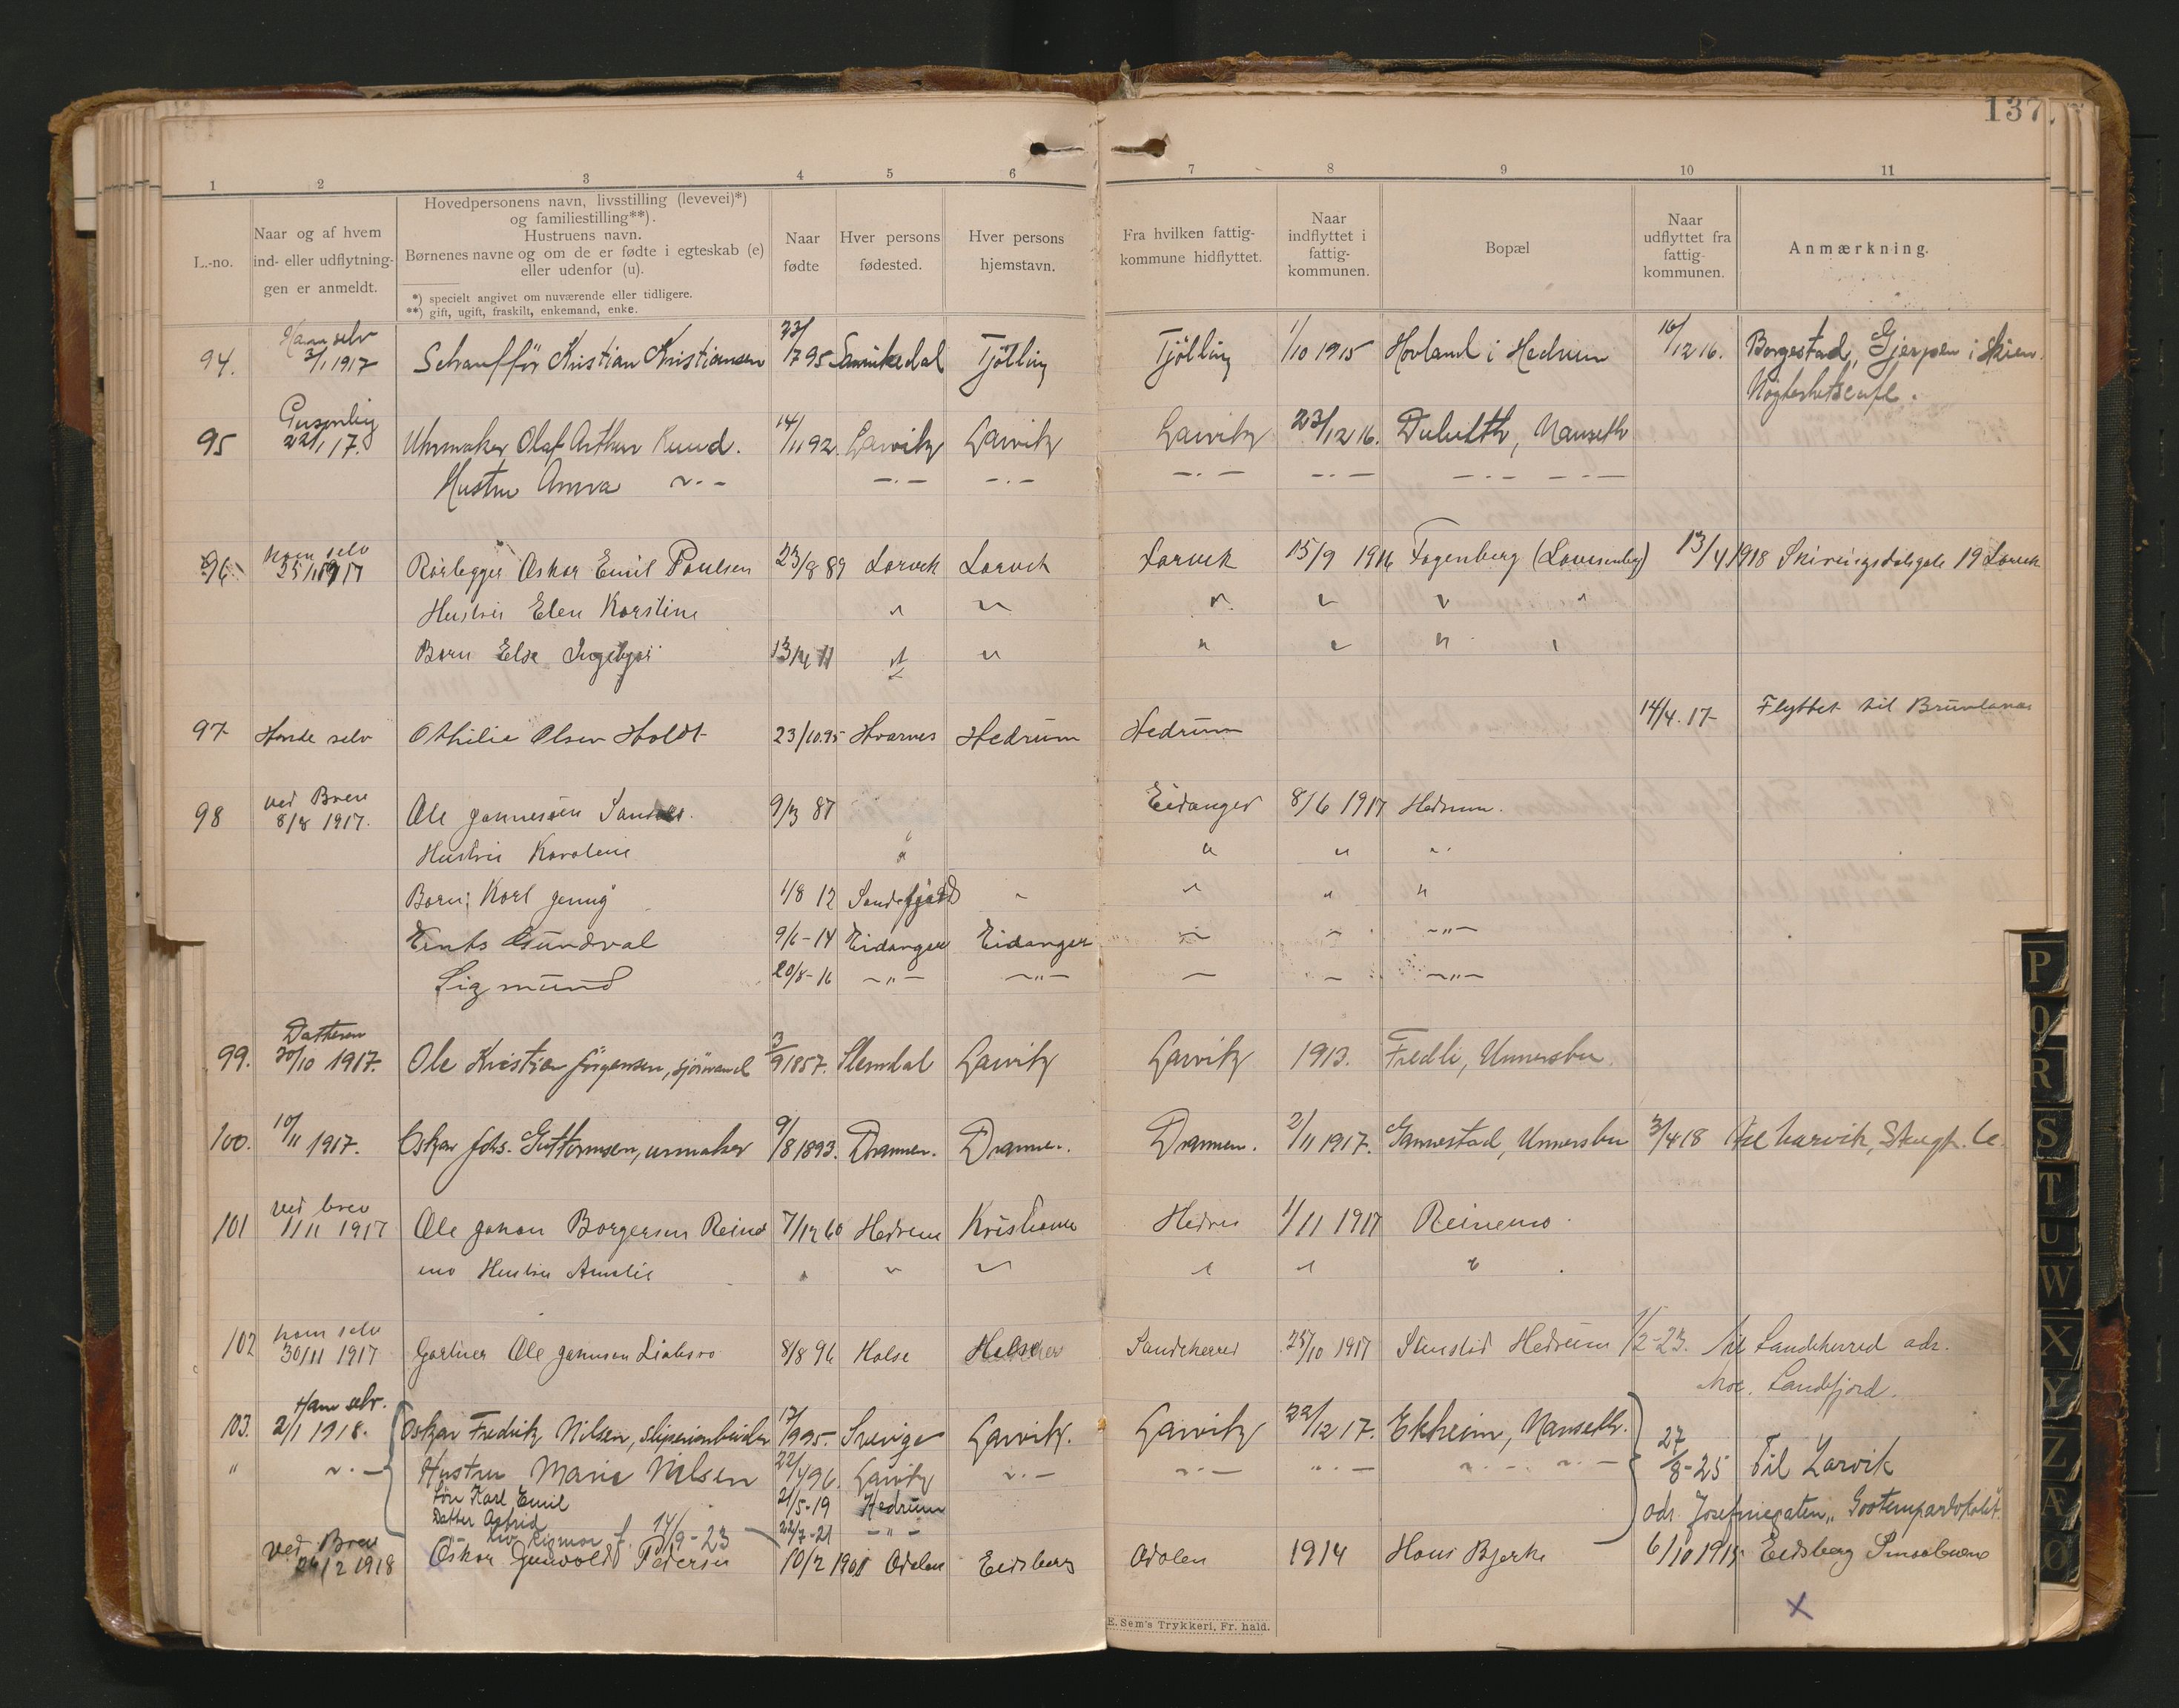 137.
1 2 3 4 5 6 7 8 9 10 11
L.-no.
Naar og af hvem
ind- eller udflytnin-
gen er anmeldt.
Hovedpersonens navn, livsstilling (levevei)*)
og familiestilling**).
Hustruens navn.
Børnenes navne og om de er fødte i egteskab (e)
eller udenfor (u).
*) specielt angivet om nuværende eller tidligere.
**) gift, ugift, fraskilt, enkemand, enke.
Naar
fødte
Hver persons
fødested.
Hver persons
hjemstavn.
Fra hvilken fattig-
kommune hidflyttet.
Naar
indflyttet i
fattig-
kommunen.
Bopæl
Naar
udflyttet fra
fattig-
kommunen.
Anmærkning.
Ham selv
94. 3/1 1917 Schauffør Kristian Kristiansen 23/1 95 Tjölling Tjölling 1/10 1915 Hovland i Hedrum 16/12 16. Borgestad, Gjerpen i Skien.
95 22/1 17. Uhrmaker Olaf Arthur Ruud. 14/11 92. Larvik Larvik Larvik 23/12 16. Nanseth
Hustru Anna ~ . – – . – – . – – . – – . – – . – – . –
hom selv
96 25/1 1917 Rørlegger Oskar Emil Poulsen 23/8 89 Larvik Larvik Larvik 15/9 1916 Fagenberg 13/4 1918 Skiringsdalsgate 19 Larvik
Hustru Elen Karstine " " " " " "
Barn Else Ingebjør 13/4 11 " " " " " "
97 Hende selv Othilie Olsen Holdt 23/10.95 Hvarnes Hedrum Hedrum 14/4.17 Flyttet til Brunlanes
ved Brev
98 8/8 1917. Ole 9/3 87 Eidanger 8/6 1917 Hedrum.
Hustru Karoline " " " "
Barn: Karl 1/8 12 Sandefjord " " " "
Gundval 9/6-14 Eidanger Eidanger – – – " –
Sigmund 20/8-16 – " – – " – – – – " –
Datteren
99. 30/10 1917. Ole Kristian Jörgensen, sjömand 3/9 1857. Slemdal Larvik Larvik 1913. Fredli, Unnersbu.
100. 10/11 1917. Oskar Johs. Guttormsen, urmaker 9/8 1893. Drammen. Drammen. Drammen. 2/11 1917. Gannestad, Unnersbu 3/4 18 til Larvik,
ved brev
101 11 11 1917 Ole Johan Borgersen Reine 7/12 60 Hedrum Hedrum 1/11 1917 Reinemo
mo Hustru Amalie " " " " " "
hom selv
102 30/11 1917 Gartner Ole 8/8 96 Halse Halse Sandeherred 25/10 1917 Hedrum 1/2-23. til Sandeherred adr.
Moe. Sandefjord.
Ham selv.
103. 2/1 1918. Oskar Fredrik Nilsen, sliperiarbeider 17/9 95. Sverige Larvik. Larvik 22/12 17. Ekheim, Nanseth. 27/8-25 Til Larvik
" ~ . – Hustru Marie Nilsen 22/4 96. Larvik ~ . – ~ . – " . – ~ . – ~ . –
Søn Karl Emil 21/5-19 Hedrum adr. Josefinegaten
Datter Astrid 22/7-21 – " –
Liv Rigmor f. 14/9-23
ved Brev
26/2 1918 Oskar Pedersen 10/2 1901 Odalen Eidsberg Odalen 1914 Hans Bjerke 6/10 1915 Eidsberg
x
E. Sem's Trykkeri, Fr. hald.
P
Q
R
S
T
U
W
X
Y
Z
Æ
Ø